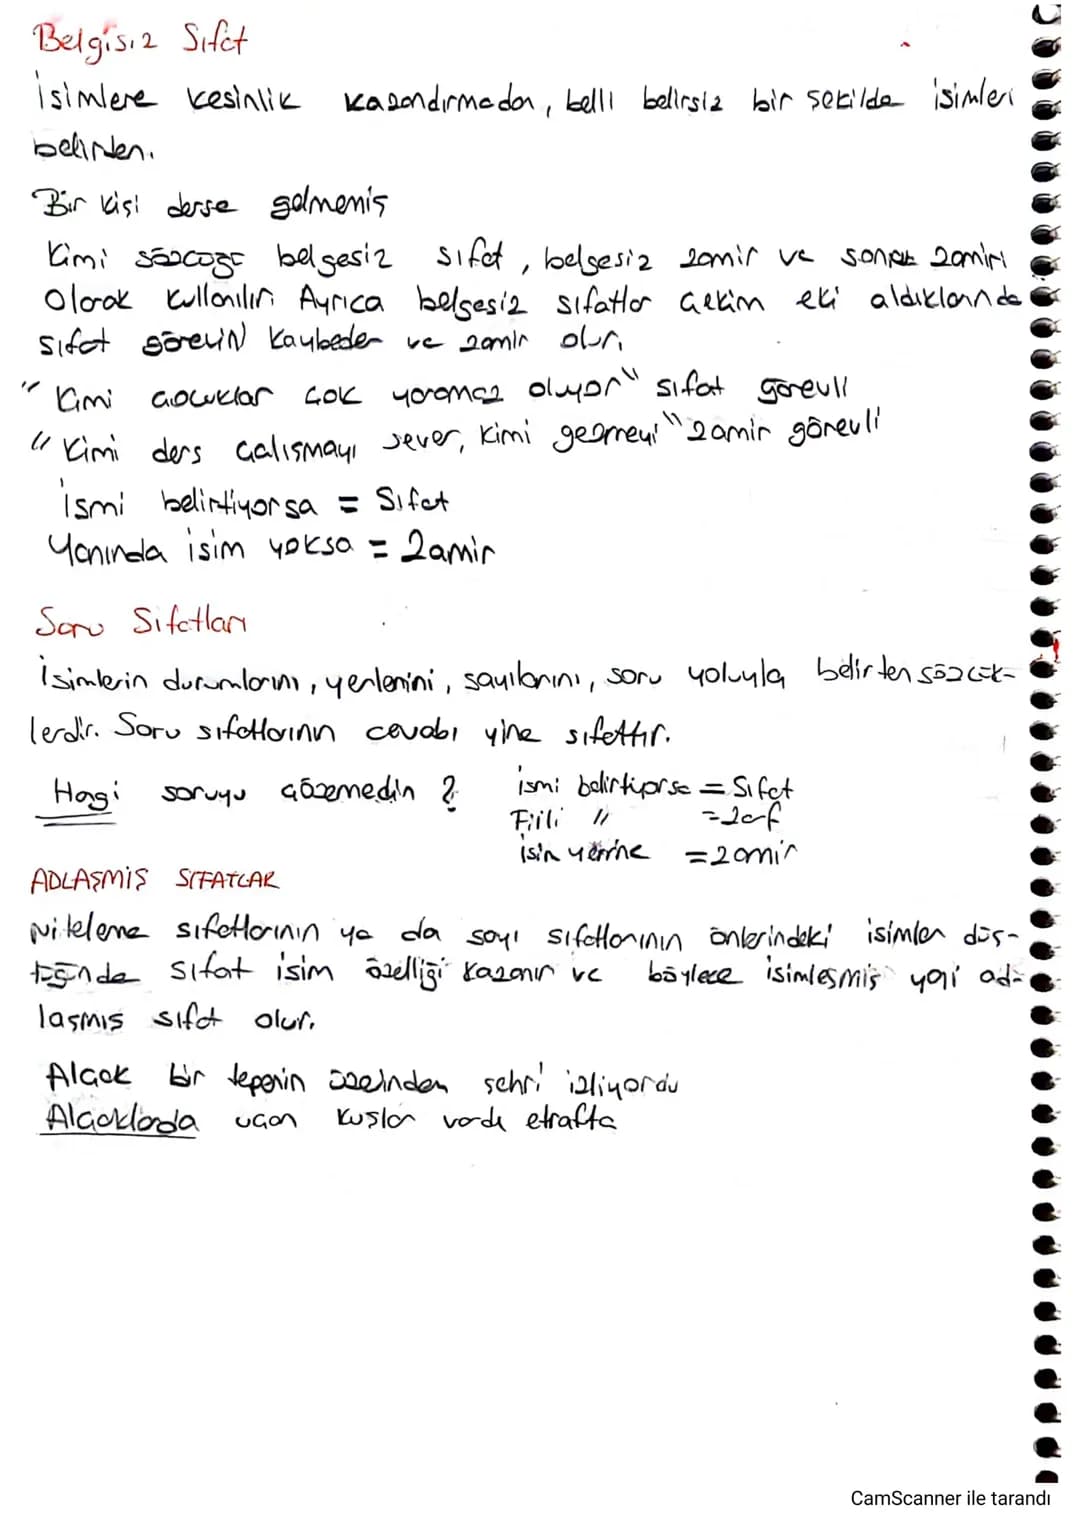 Belgisiz Sıfat
İsimlere kesinlik kazandırmadan, belli belirsiz bir şekilde isimleri
belirten.
Bir kişi derse gelmemiş
Kimi belgesiz sıfat, belgesiz zamir ve zamiri
Olarak kullanılır. Ayrıca belgesiz sıfatlar çekim eki aldıklarında
sıfat görevin kaybeder ve zamir olur.
" Kimi çocuklar çok yaramaz oluyor" sıfat görevli
" Kimi ders çalışmayı sever, kimi gezmeyi" zamir görevli
İsmi belirtiyorsa = Sıfat
Yanında isim yoksa = Zamir
Soru Sıfatları
İsimlerin durumlarını, yerlerini, sayılarını, soru yoluyla belirten sözcük-
lerdir. Soru sıfatlarının cevabı yine sıfattır.
Hagi soruyu çözemedin ? ismi belirtiyorsa = Sıfat
Fiili " = zarf
isin yerine = zamir
ADLAŞMIŞ SIFATLAR
Niteleme sıfatlarının ya da sayı sıfatlarının önlerindeki isimler düş-
tüğünde sıfat isim özelliği kazanır ve böylece isimleşmiş yani ad-
laşmış sıfat olur.
Alçak bir tepenin üzerinden şehri izliyordu
Alçaklarda uçan kuşlar vardı etrafta
CamScanner ile tarandı